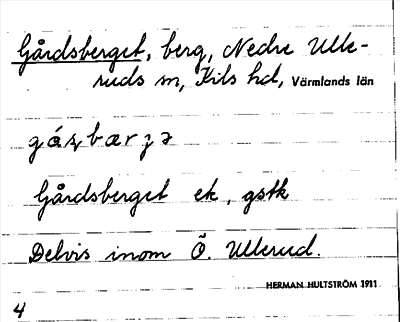 Gårdsberget, berg, Nedre Ulle-
ruds sn, Kils hd, Värmlands län
Gårdsberget ek, gstk
Delvis inom Ö. Ullerud.
HERMAN HULTSTRÖM 1911
4